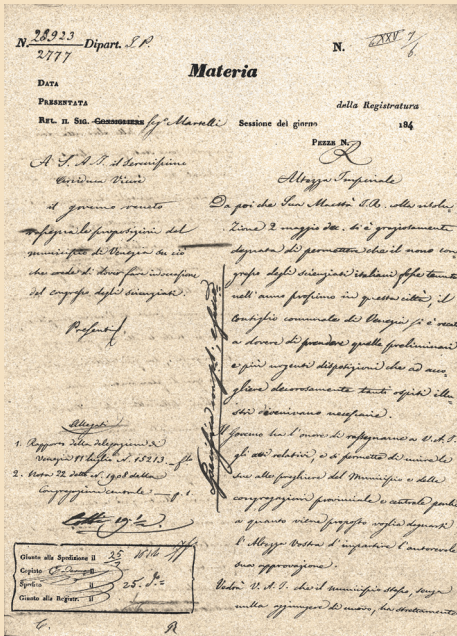 N. 28923 Dipart. I. P.
2777
N. XXV 7/6.
Materia
DATA
PRESENTATA
della Registratura
REL. IL SIG. CONSIGLIERE Seg.o Marselli
Sessione del giorno 184
PEZZE N.
R
A S. A. I. il Serenissimo
Arciduca Viceré
il governo veneto
rassegna le proposizioni del
municipio di Venezia su ciò
che crede di dover fare in occasione
del congresso degli scienziati.
Presenti
Allegati
1. Rapporto della delegazione di
Venezia 11 luglio N. 15213
2. Nota 22 detto N. 1908 della
Congregazione centrale p. 1.
Giunto alla Spedizione il 25
Copiato
Spedito il 25. d.o
Giunto alla Registr. il
Altezza Imperiale
Da poi che Sua Maestà I. R. colla risolu-
zione 2 maggio si è graziosamente
degnata di permettere che il nono con-
gresso degli scienziati italiani fosse tenuto
nell'anno prossimo in questa città, il
Consiglio comunale di Venezia si è recato
a dovere di prendere quelle preliminari
e più urgenti disposizioni che ad acco-
gliere decorosamente tanti ospiti illu-
stri divenivano necessarie.
Il Governo ha l'onore di rassegnarne a V. A. I.
gli atti relativi, e si permette di unire le
sue alle preghiere del Municipio e delle
congregazioni provinciale e centrale perchè
a quanto viene proposto voglia degnarsi
l'Altezza Vostra d'impartire l'autorevole
sua approvazione.
Vedrà V. A. I. che il municipio stesso, senza
nulla aggiungere di nuovo, ha strettamente